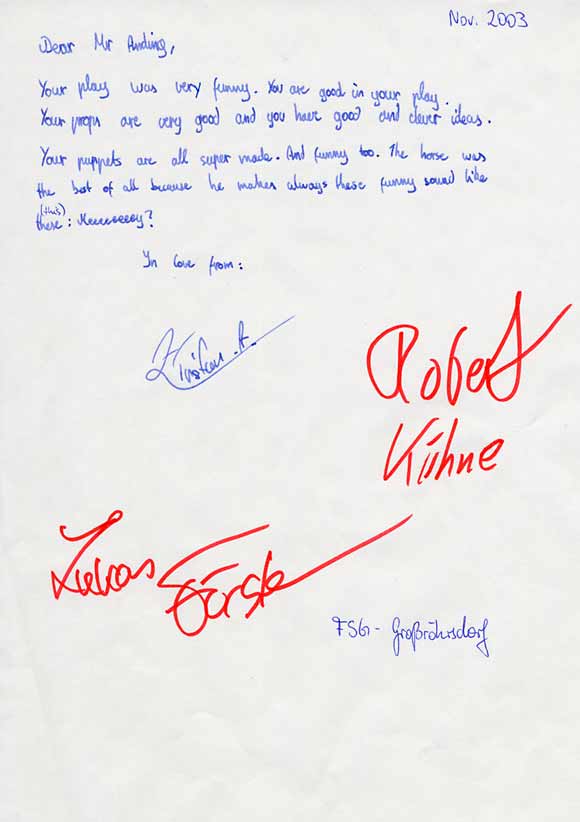 Nov. 2003
Dear Mr Anding,
Your play was very funny. You are good in your play.
Your props are very good and you have good and clever ideas.
Your puppets are all super made. And funny too. The horse was
the best of all because he makes always these funny sound like
(this)
these: 
In love from:
Robert
Kühne
Lukas
FSG - Großröhrsdorf